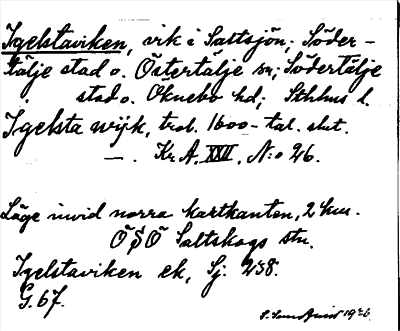 Igelstaviken, vik i Saltsjön; Söder-
tälje stad o. Östertälje sn; Södertälje
stad o. Öknebo hd; Sthlms l.
Igelsta wijk, trol. 1600-tal. slut.
—. Kr A. XXII. N:o 26.
Läge invid norra kartkanten, 2 km.
ÖSÖ Saltskogs stn.
Igelstaviken ek, Sj. 238.
G. 67.
1926.